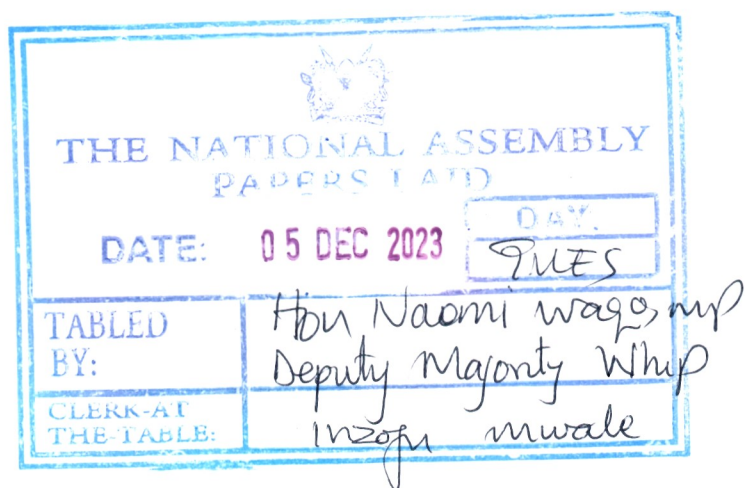 THE NATIONAL ASSEMBLY
PAPERS LAID
DATE: 05 DEC 2023 DAY.
TUES
TABLED BY: Hon Naomi Waqo, MP
Deputy Majority Whip
CLERK-AT THE-TABLE: Inzofu Mwale